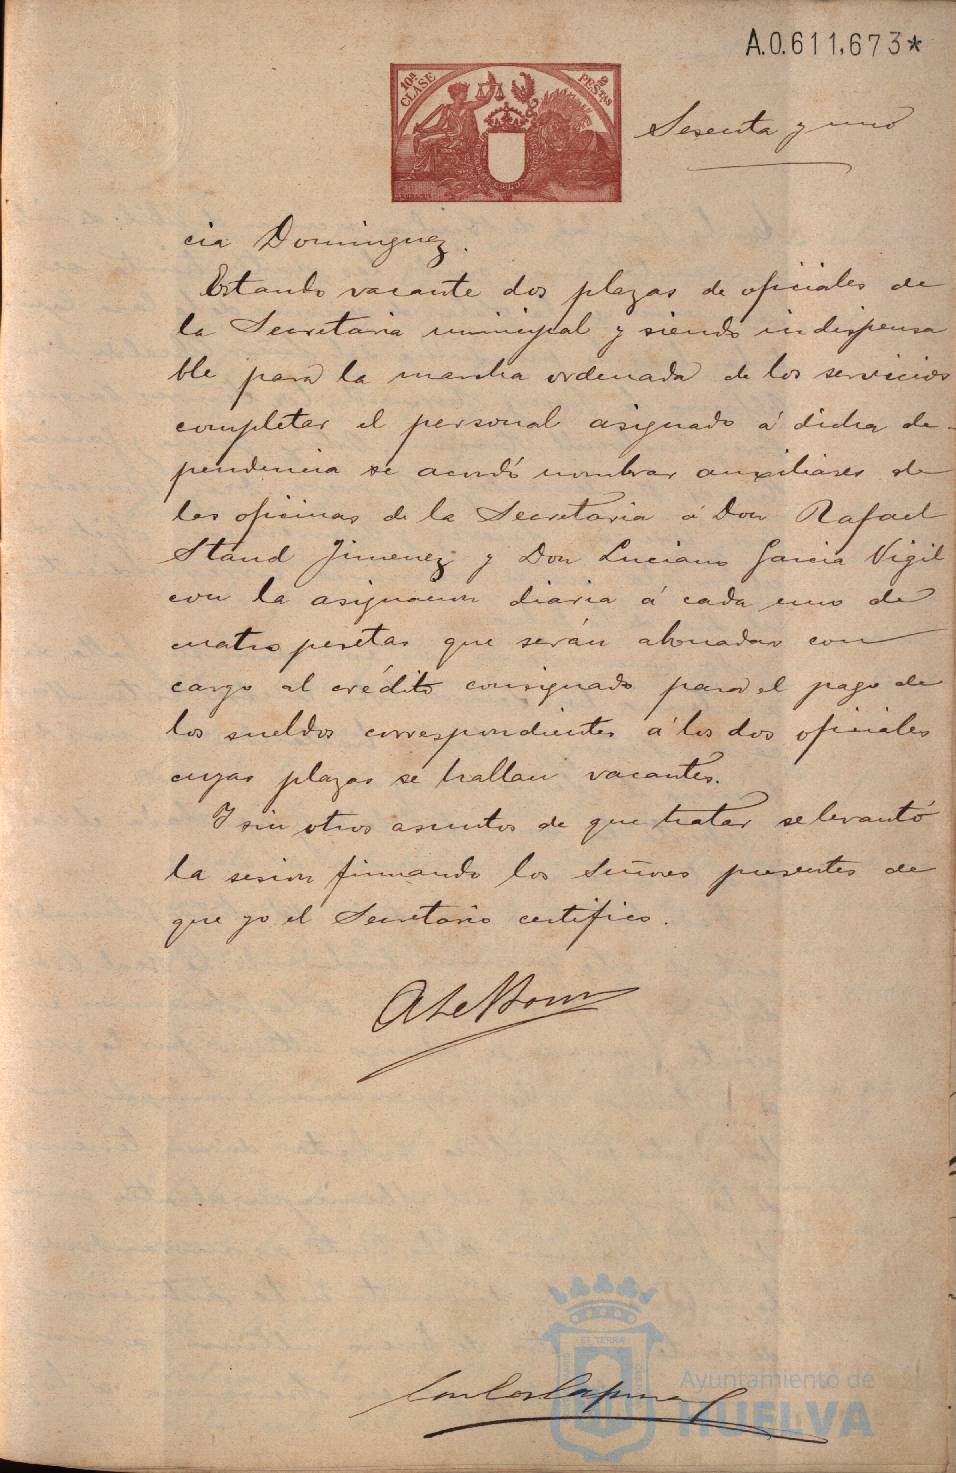 A.0.611,673*
10ª CLASE
2 PESTAS
Sesenta y uno
cia Dominguez.
Estando vacante dos plazas de oficiales de
la Secretaria municipal y siendo indispensa
ble para la marcha ordenada de los servicios
completar el personal asignado á dicha de-
pendencia se acordó nombrar auxiliares de
las oficinas de la Secretaria á Don Rafael
Stand Jimenez y Don Luciano Garcia Vigil
con la asignacion diaria á cada uno de
cuatro pesetas que serán abonadas con
cargo al crédito consignado para el pago de
los sueldos correspondientes á los dos oficiales
cuyas plazas se hallan vacantes.
Y sin otros asuntos de que tratar se levantó
la sesion firmando los Señores presentes de
que yo el Secretario certifico.
ET TERRA
Ayuntamiento de
HUELVA